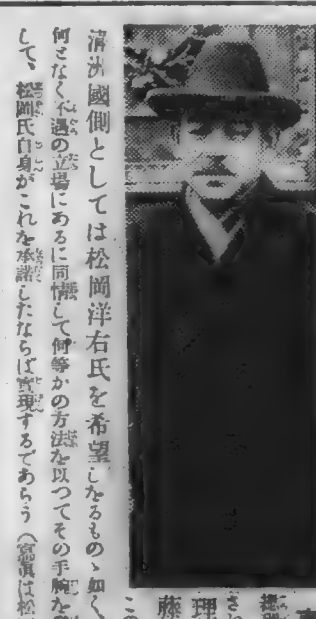 滿洲國側としては松岡洋右氏を希望しをるものゝ如く、
何となく不遇の立場にあるに同情して何等かの方法を以つてその手腕を
して、松岡氏自身がこれを承諾したならば實現するであらう(寫眞は松
理
藤
この